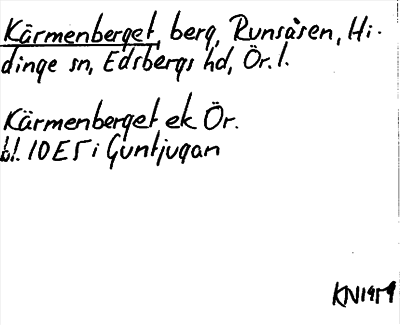 Kärmenberget, berg, Runsåsen, Hi-
dinge sn, Edsbergs hd, Ör. l.
Kärmenberget ek Ör.
bl. 10 E 5 i Guntjugan
KN 1959